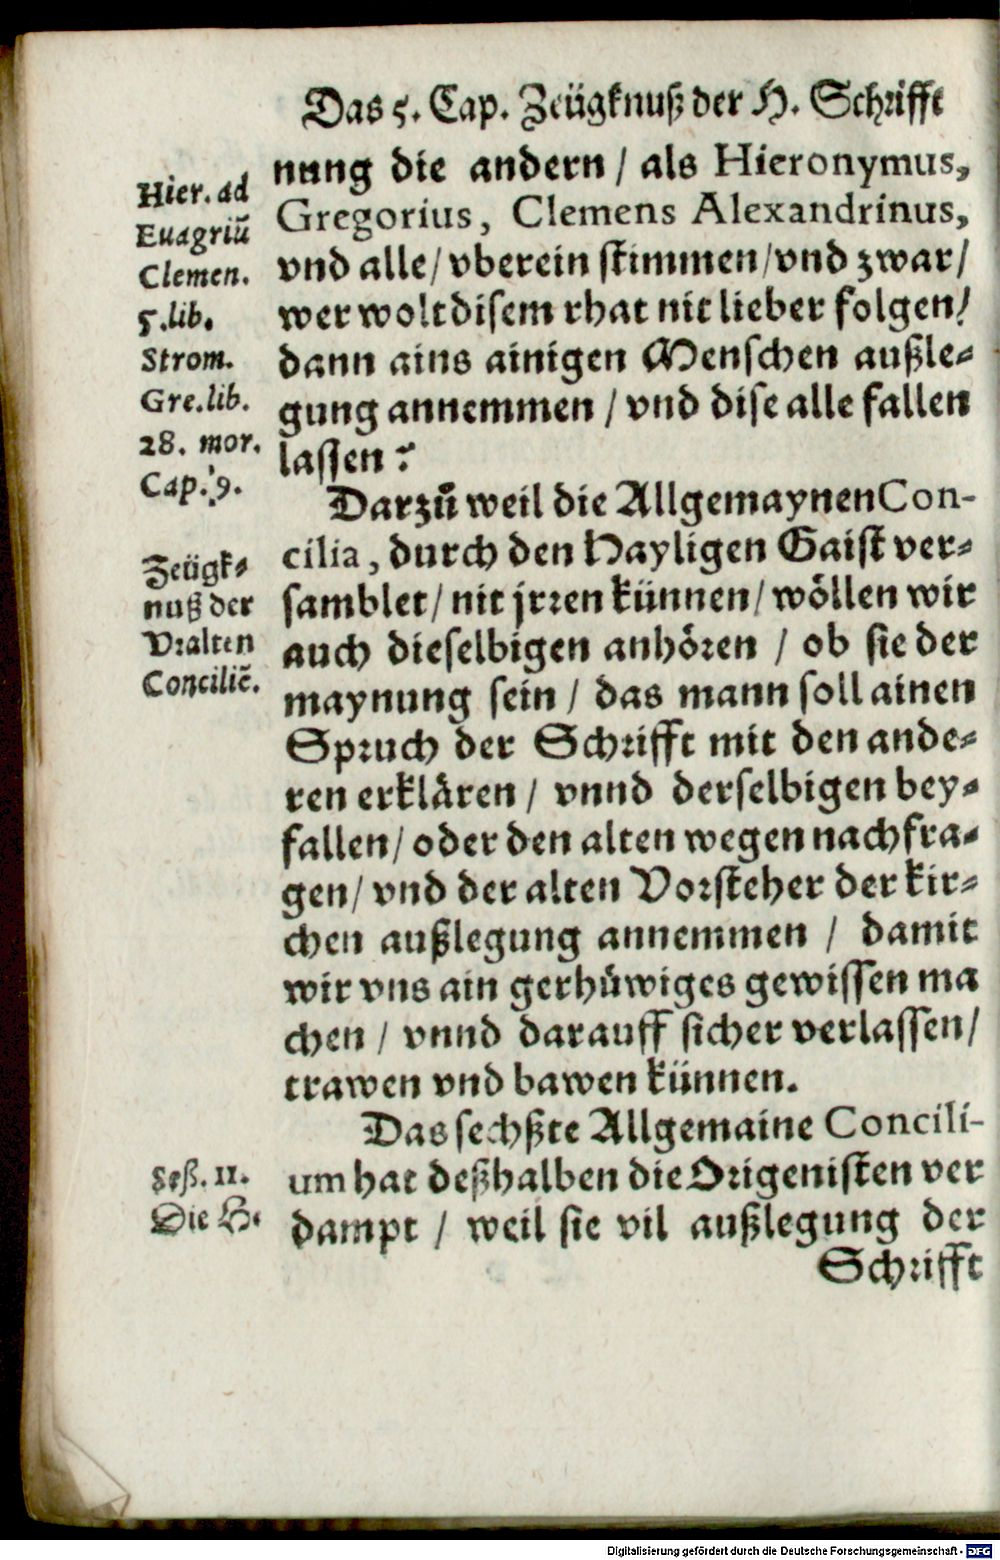 Das 5. Cap. Zeügknuß der H. Schrifft
nung die andern / als Hieronymus,
Gregorius, Clemens Alexandrinus,
vnd alle / vberein stimmen / vnd zwar /
wer wolt disem rhat nit lieber folgen /
dann ains ainigen Menschen außle-
gung annemmen / vnd dise alle fallen
lassen?
Darzů weil die Allgemaynen Con-
cilia, durch den Hayligen Gaist ver-
samblet / nit jrren künnen / wöllen wir
auch dieselbigen anhören / ob sie der
maynung sein / das mann soll ainen
Spruch der Schrifft mit den ande-
ren erklären / vnnd derselbigen bey-
fallen / oder den alten wegen nachfra-
gen / vnd der alten Vorsteher der kir-
chen außlegung annemmen / damit
wir vns ain gerhůwiges gewissen ma
chen / vnnd darauff sicher verlassen /
trawen vnd bawen künnen.
Das sechßte Allgemaine Concili-
um hat deßhalben die Origenisten ver
dampt / weil sie vil außlegung der
Schrifft
Hier. ad
Euagriũ
Clemen.
5. lib.
Strom.
Gre. lib.
28. mor.
Cap. 9.
Zeügk-
nuß der
Vralten
Conciliẽ.
Seß. 11.
Die H.
Digitalisierung gefördert durch die Deutsche Forschungsgemeinschaft - DFG